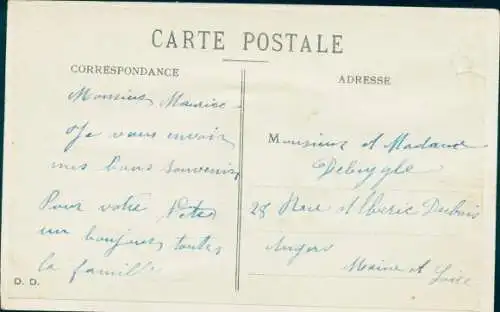 CARTE POSTALE
CORRESPONDANCE
ADRESSE
Monsieur Maurice
Je vous envoie
mes bons souvenirs
Pour votre fête
un bonjour toute
la famille
D. D.
Monsieur et Madame
28 Rue Alberic Dubois
Angers
Maine et Loire